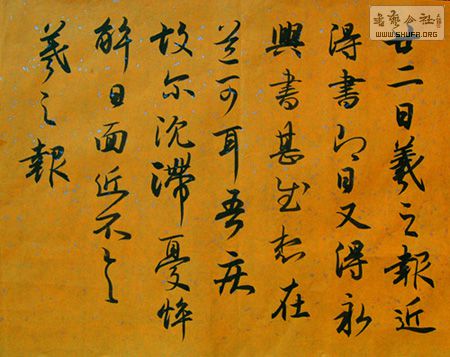 廿二日羲之報近
得書即日又得永
興書甚慰想在
道可耳吾疾
故尔沉滯憂悴
解日面近不具
羲之報
書藝公社
WWW.SHUFA.ORG